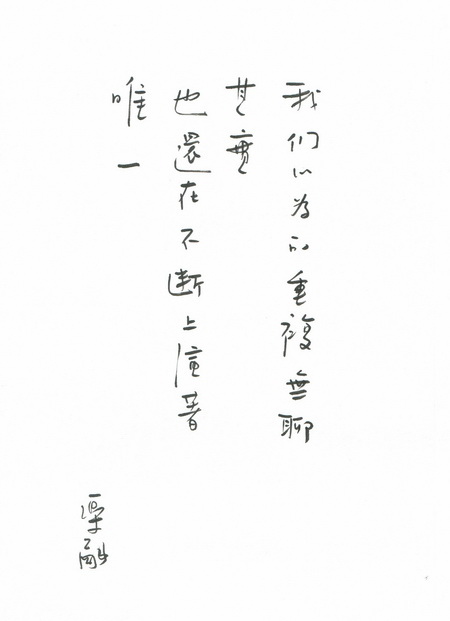 我们以為的重複無聊
其實
也還在不断上演著
唯一